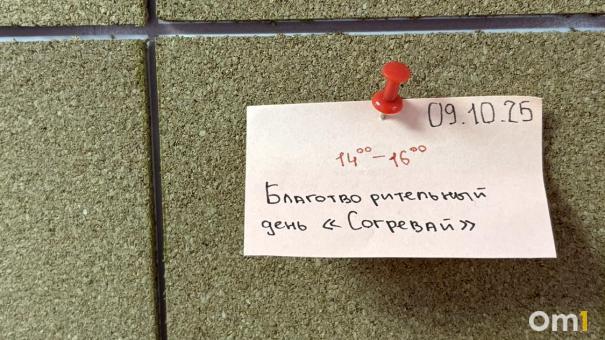 09.10.25
14⁰⁰ – 16⁰⁰
Благотворительный
день « Согревай»
Om1